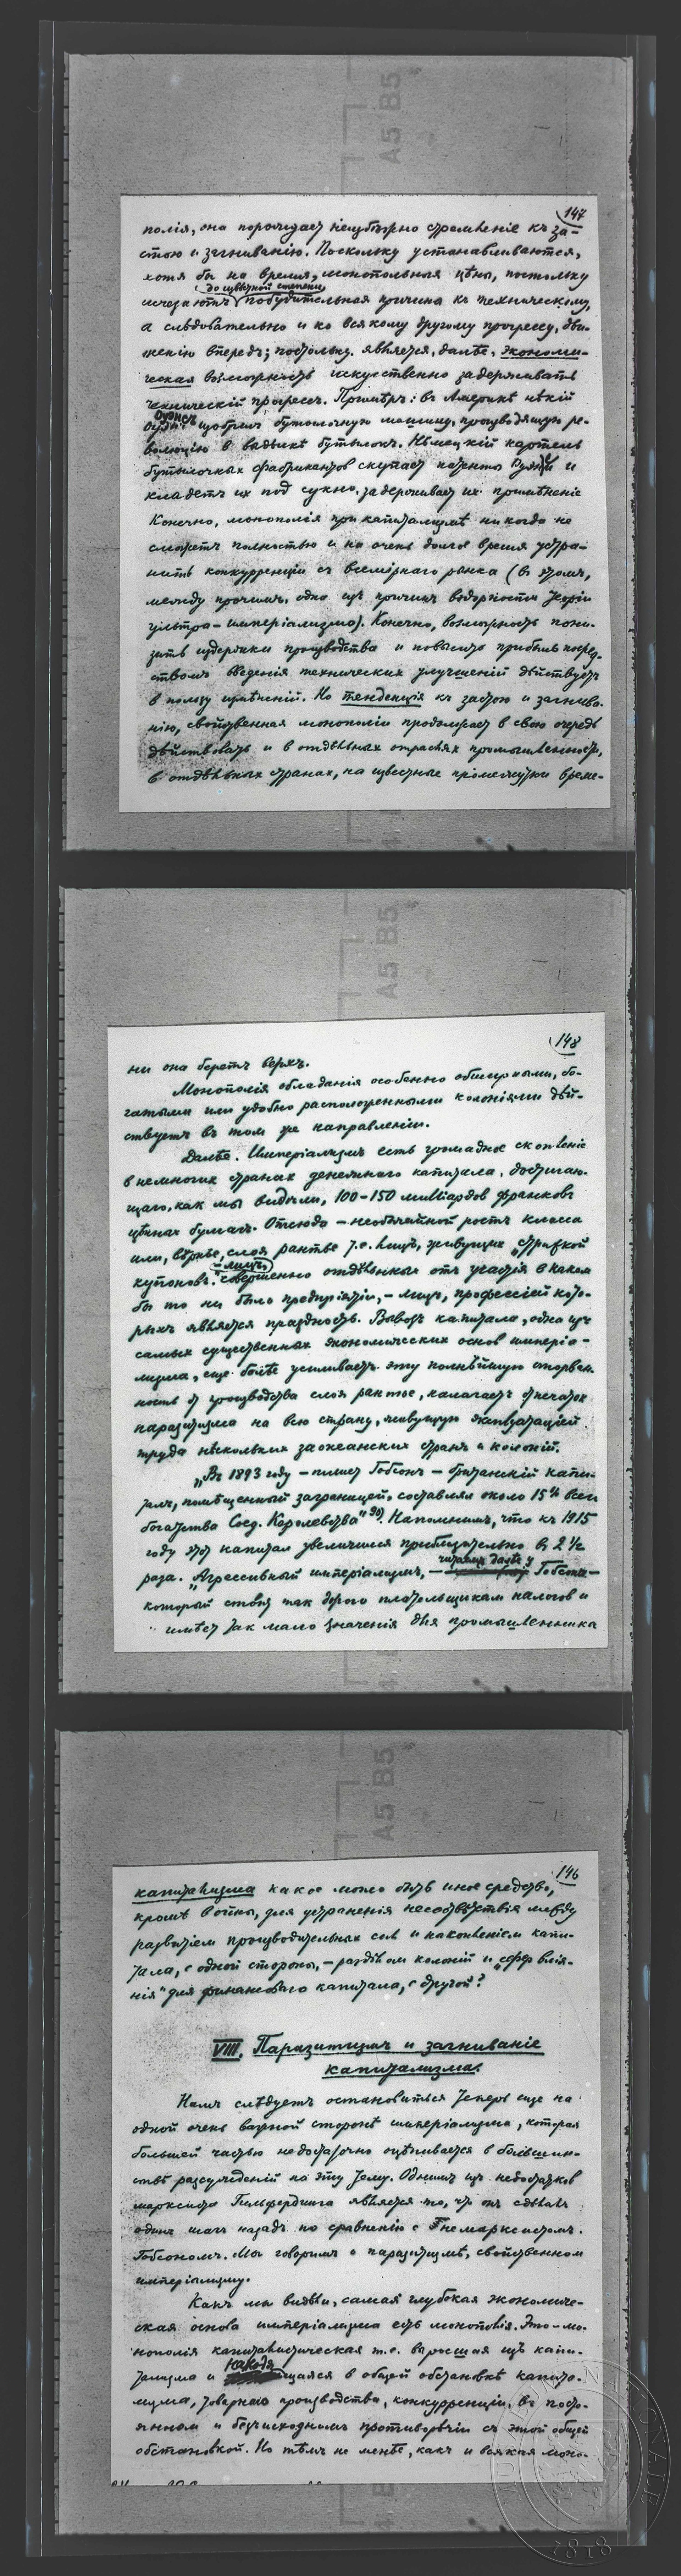 147
полія, она порождает неизбѣжно стремленіе къ за-
стою и загниванію. Поскольку устанавливаются,
хотя бы на время, монопольныя цѣны, постольку
до извѣстной степени
исчезаютъ побудительныя причины къ техническому,
а слѣдовательно и ко всякому другому прогрессу, дви-
женію впередъ; постольку является, далѣе, экономи-
ческая возможность искусственно задерживать
техническій прогрессъ. Примѣръ: въ Америкѣ нѣкій
Оуэнсъ
изобрѣл бутылочную машину, производящую ре-
волюцію в выдѣлкѣ бутылокъ. Нѣмецкій картель
бутылочных фабрикантов скупает патенты и
кладетъ их под сукно, задерживает их примѣненіе
Конечно, монополія при капитализмѣ никогда не
сможетъ полностью и на очень долгое время устра-
нить конкурренціи съ всемірнаго рынка (въ этом,
между прочимъ, одна изъ причинъ вздорности теоріи
ультра-имперіализма). Конечно, возможность пони-
зить издержки производства и повысить прибыль посред-
ствомъ введенія технических улучшеній дѣйствуетъ
в пользу измѣненій. Но тенденція къ застою и загнива-
нію, свойственная монополіи продолжает в свою очередь
дѣйствовать и в отдѣльных отраслях промышленности,
в отдѣльных странах, на известные промежутки време-
148
ни она беретъ верхъ.
Монополія обладанія особенно обширными, бо-
гатыми или удобно расположенными колоніями дѣй-
ствуетъ въ том же направленіи.
Далѣе. Имперіализмъ есть громадное скопленіе
в немногих странах денежнаго капитала, достигаю-
щаго, как мы видѣли, 100-150 милліардов франковъ
цѣнных бумагъ. Отсюда – необычайной ростъ класса
или, вѣрнѣе, слоя рантье т.е. лицъ, живущих „стрижкой
– лицъ,
купоновъ“, совершенно отдѣленных отъ участія в каком
бы то ни было предпріятіи, – лицъ, профессіей кото-
рыхъ является праздность. Вывозъ капитала, одна изъ
самых существенных экономических основ имперіа-
лизма, еще болѣе усиливаетъ эту полнѣйшую оторван-
ность от производства слоя рантье, налагаетъ отпечаток
паразитизма на всю страну, живущую эксплуатаціей
труда нѣскольких заокеанских стран и колоній.
„Въ 1893 году – пишет Гобсонъ – британскій капи-
тал, помѣщенный заграницей, составлял около 15% всего
богатства Соед. Королевства“ 90). Напомнимъ, что къ 1915
году этот капитал увеличился приблизительно въ 2 1/2
раза. „Агрессивный имперіализмъ, –
читаемъ далѣе у
Гобсона –
который стоит так дорого плательщикам налогов и
имѣет так мало значенія для промышленника
146
капитализма какое могло быть иное средство,
кромѣ войны, для устраненія несоотвѣтствія между
развитіем производительных сил и накопленіем капи-
тала, с одной стороны, – раздѣлом колоній и „сфер влія-
нія“ для финансоваго капитала, с другой?
VIII. Паразитизмъ и загниваніе
капитализма.
Намъ слѣдуетъ остановиться теперь еще на
одной очень важной сторонѣ имперіализма, которая
большей частью недостаточно оцѣнивается в большин-
ствѣ разсужденій на эту тему. Однимъ изъ недостатков
марксиста Гильфердинга является то, что онъ сдѣлалъ
одинъ шагъ назадъ по сравненію с немарксистомъ
Гобсономъ. Мы говоримъ о паразитизмѣ, свойственном
имперіализму.
Какъ мы видѣли, самая глубокая экономиче-
ская основа имперіализма есть монополія. Это – мо-
нополія капиталистическая т.е. выросшая изъ капи-
тализма и находящаяся в общей обстановкѣ капита-
лизма, товарнаго производства, конкурренціи, въ посто-
янном и безъисходномъ противорѣчіи съ этой общей
обстановкой. Но тѣмъ не менѣе, какъ и всякая моно-